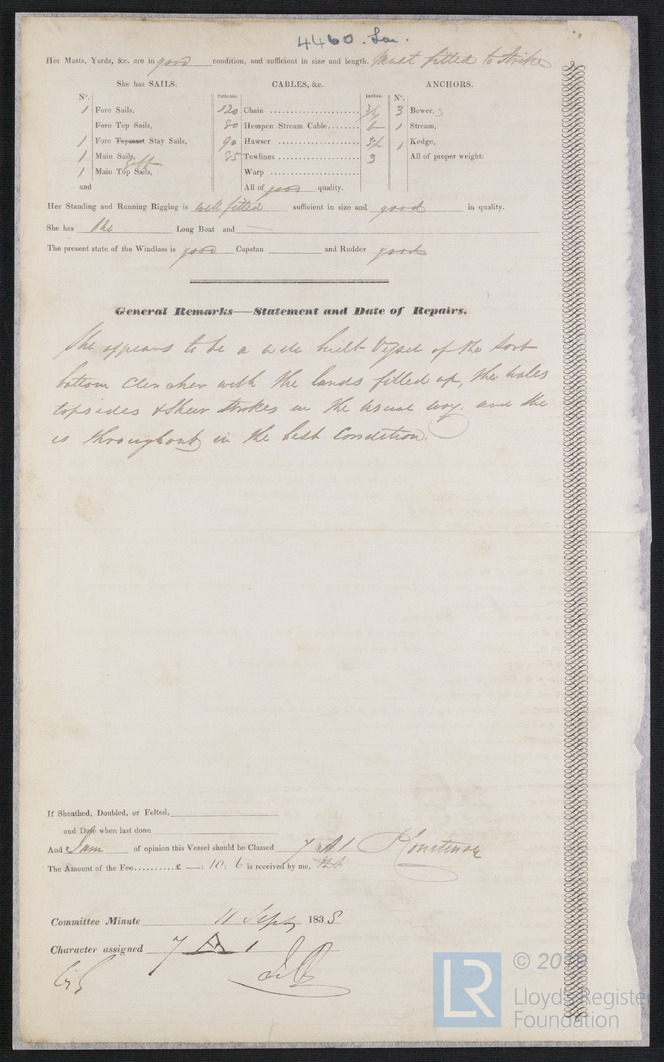 4460. Lon.
Her Masts, Yards, &c. are in good condition, and sufficient in size and length. Mast fitted to strike
She has SAILS. CABLES, &c. ANCHORS.
Nº. Fathoms. Inches. Nº.
1 Fore Sails, 120 Chain 3 Bower,
Fore Top Sails, 80 Hempen Stream Cable 6 1 Stream,
1 Fore Topmast Stay Sails, 90 Hawser 3½ 1 Kedge,
1 Main Sails, 85 Towlines 3 All of proper weight.
Gaff
1 Main Top Sails, Warp
and All of good quality.
Her Standing and Running Rigging is well fitted sufficient in size and good in quality.
She has One Long Boat and
The present state of the Windlass is good Capstan and Rudder good
General Remarks—Statement and Date of Repairs.
She appears to be a well built Vessel of the sort
bottom clencher with the lands filled up, the wales
topsides & sheer strokes in the usual way. and she
is throughout in the best Condition.
If Sheathed, Doubled, or Felted,
and Date when last done
And I am of opinion this Vessel should be Classed 7 A 1
The Amount of the Fee £ —: 10: 6 is received by me,
Committee Minute 11 Septr 1835
Character assigned 7 A 1
LR
Lloyd's Register
Foundation